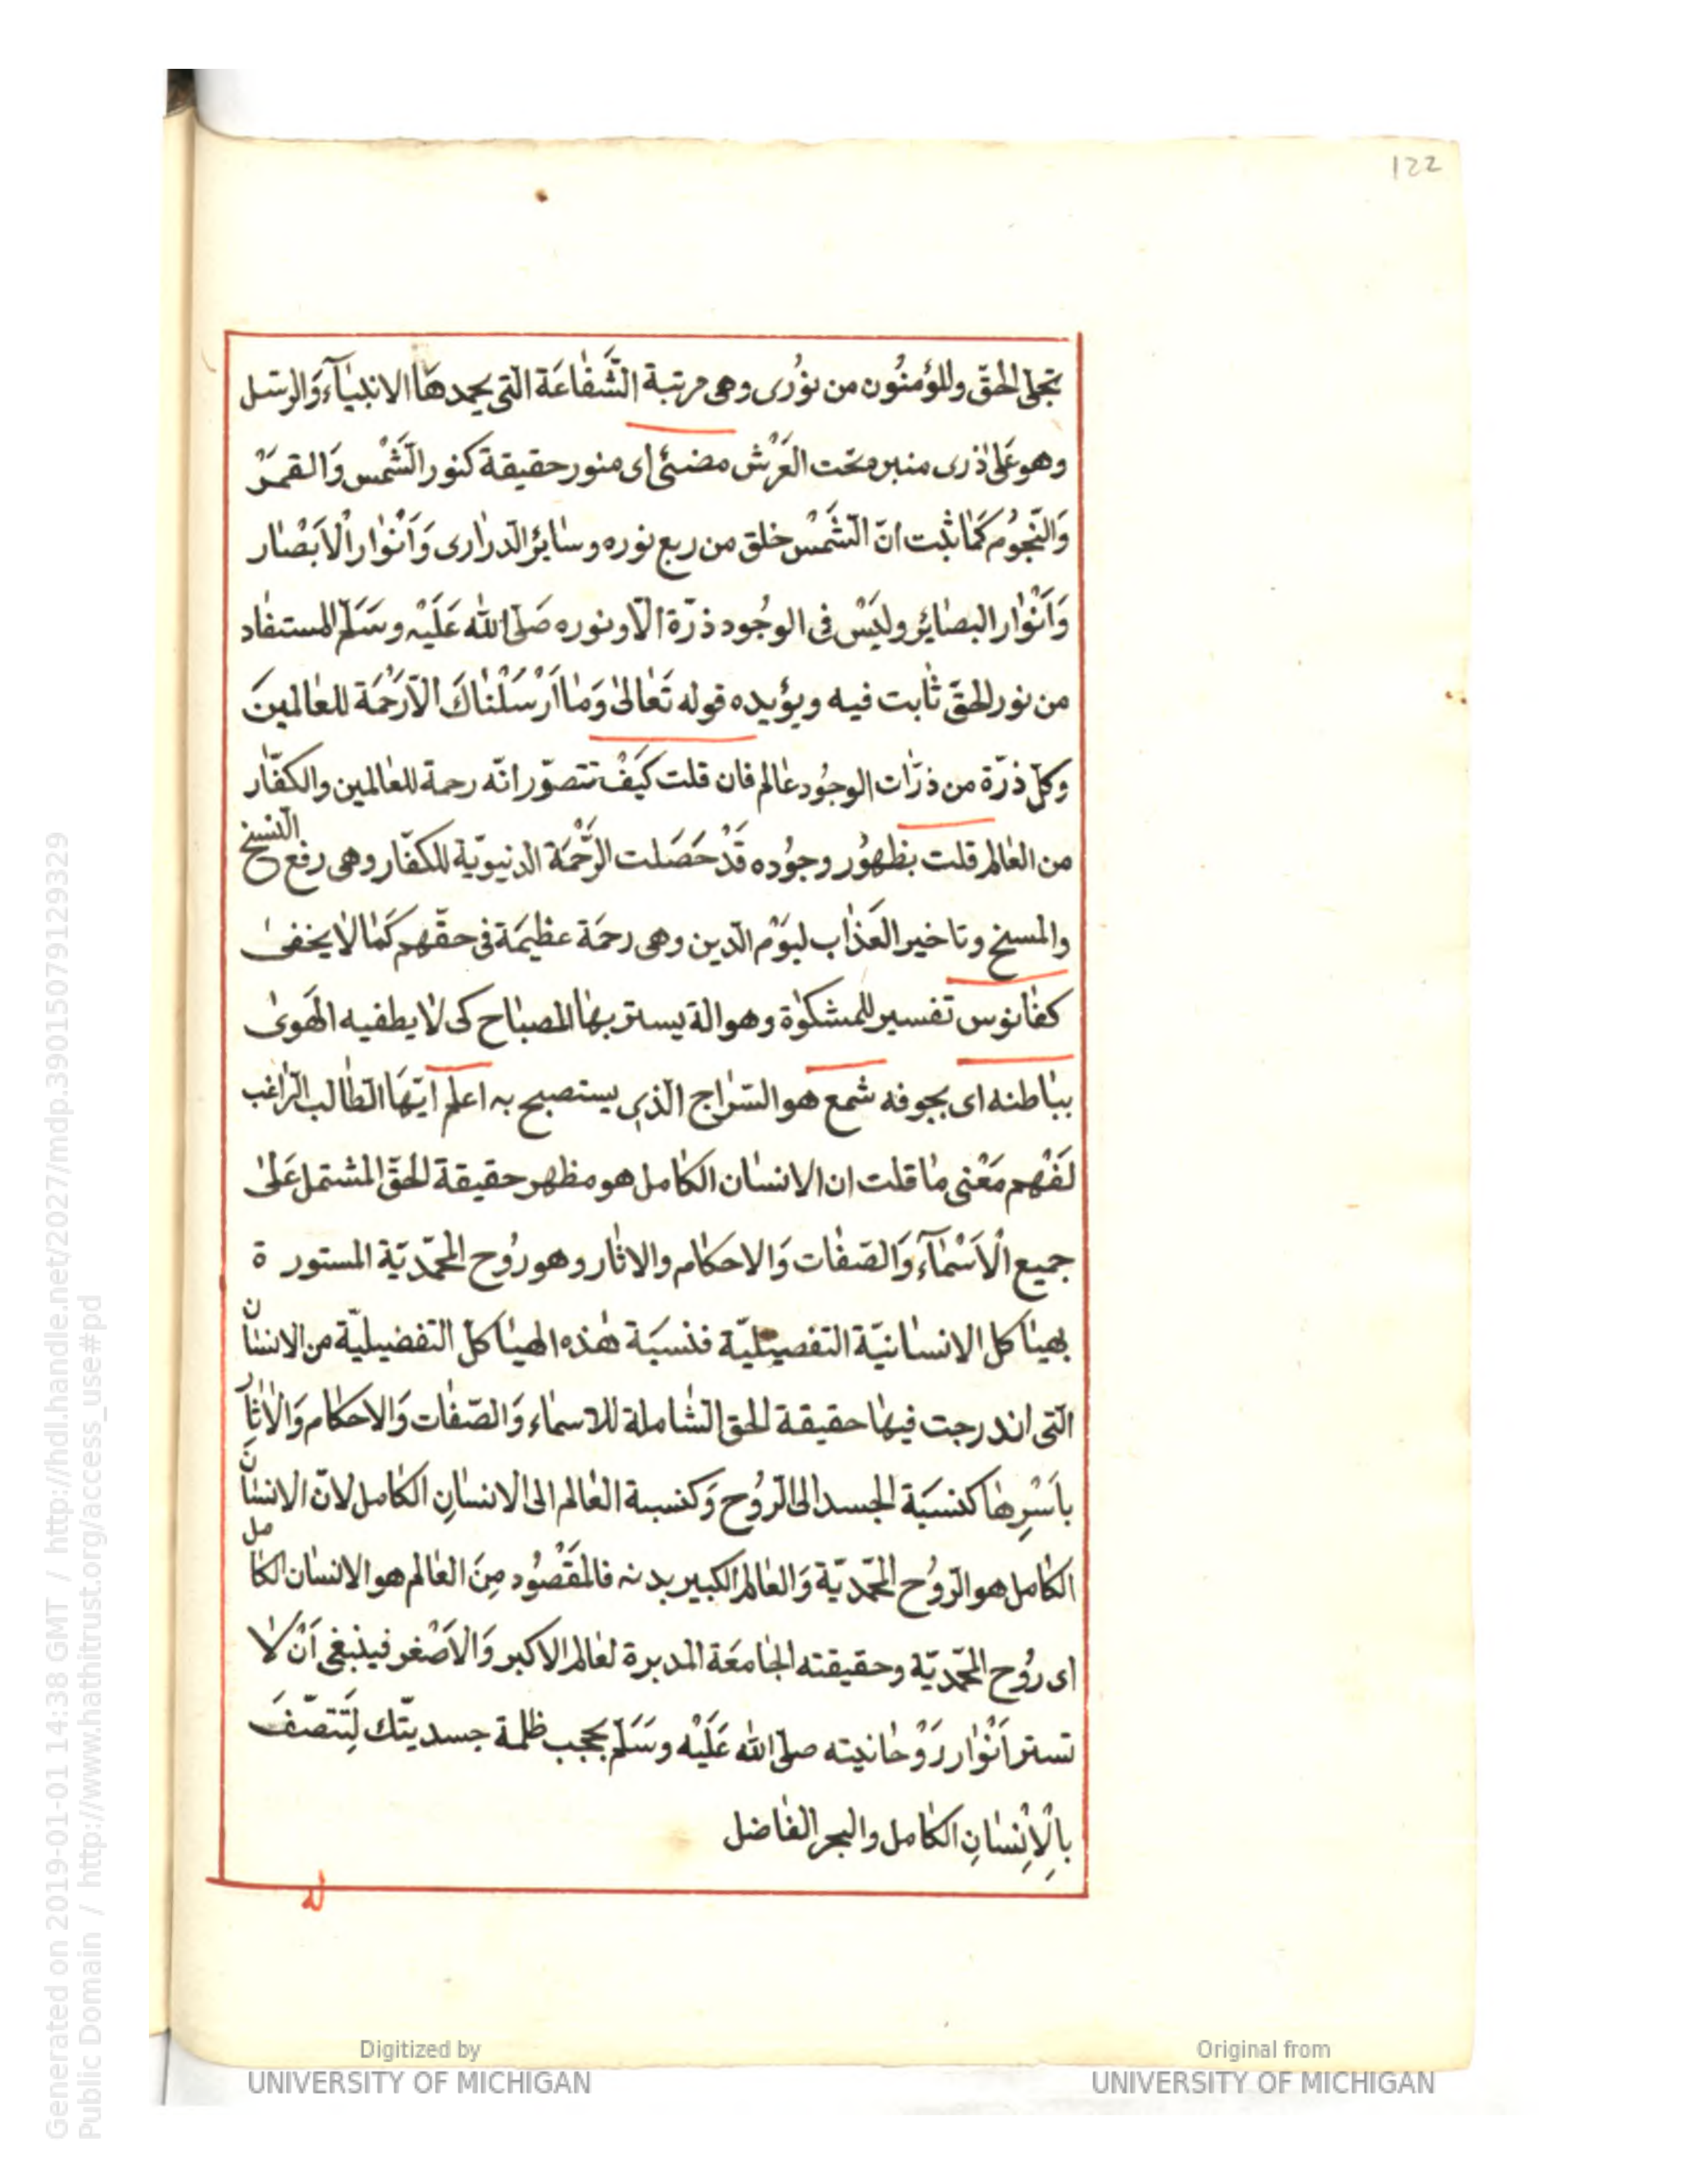 122
تجلّى الحقّ وللمؤمنُون من نوُرى وهى مرتبة الشَّفاعَة الّتى يحمدهَا الانبيآء وَالرسل
وهو عَلىٰ ذرى منبر ومحّت العَرْش مضئ اى منور حقيقة كنور الشَّمْس وَالقمَرْ
وَالنّجوُم كَمَا ثبت انّ الشَّمْس خلق من ربع نوره وسٰايرُ الدرارى وَاَنوٰار الْاَبْصٰار
وَاَنْوٰار البصٰاير وليَسْ فى الوجُود ذرّة الّا ونوره صَلّى الله عَلَيْه وسَلّم المستفاد
من نور الحقّ ثابت فيه ويؤيده قوله تَعٰالىٰ وَمٰا اَرْسَلْنٰاكَ الّا رَحْمَة للعٰالمينَ
وكلّ ذرّة من ذرّات الوجوُد عٰالم فان قلت كَيَفْ تتصوّر انّه رحمة للعٰالمين والكفّار
من العٰالم قلت بظهوُر وجوُده قَدْ حَصَلت الرَّحْمَة الدنيويّة للكفّار وهى رفع النسخ
والمسخ وتاخير العَذٰاب ليَوْم الدّين وهى رحمَة عظيمَة فى حقّهم كَمٰا لا يخفىٰ
كفٰانوس تفسير للمشكوٰة وهو الة يستر بهٰا المصبٰاح كى لا يطفيه الهَوىٰ
ببٰاطنه اى بجوفه شمع هو السّرٰاج الّذى يستصبح به اعلم ايّهَا الطّالب الرّاغب
لفَهْم مَعْنى مٰا قلت ان الانسٰان الكٰامل هو مظهر حقيقة الحقّ المشتمل عَلىٰ
جميع الْاَسْمٰآء وَالصّفٰات وَالاحكٰام والاثٰار وهو روُح المحمّديّة المستور ة
بهيٰاكل الانسٰانيّة التفصيليّة فنسبَة هٰذه الهيٰاكل التفضيليّة من الانسٰان
الّتى اندرجت فيهٰا حقيقة الحق الشّاملة للاسمٰاء وَالصّفٰات وَالاحكٰام وَالْاثٰار
باَسْرِهٰا كنسبَة الجسد الى الرّوُح وَكنسبة العٰالم الى الانسٰانِ الكٰامل لانّ الانسٰانَ
الكٰامل هو الرّوُح المحمّديّة وَالعٰالم الكبير بدنه فالمَقْصُود مِنَ العٰالم هو الانسٰان الكٰامل
اى روُح المحمّديّة وحقيقته الجٰامعَة المدبرة لعٰالم الاكبر وَالْاَصْغر فينبغى اَنْ لا
تستر اَنْوٰار رَوْحٰانيته صلّى الله عَلَيْه وسَلّم بحجب ظلمة جسديتّك لِتَتصّفَ
بالْاِنْسٰانِ الكٰامل والبحر الفٰاضل
Digitized by
UNIVERSITY OF MICHIGAN
Original from
UNIVERSITY OF MICHIGAN
Generated on 2019-01-01 14:38 GMT / http://hdl.handle.net/2027/mdp.39015079129329
Public Domain / http://www.hathitrust.org/access_use#pd